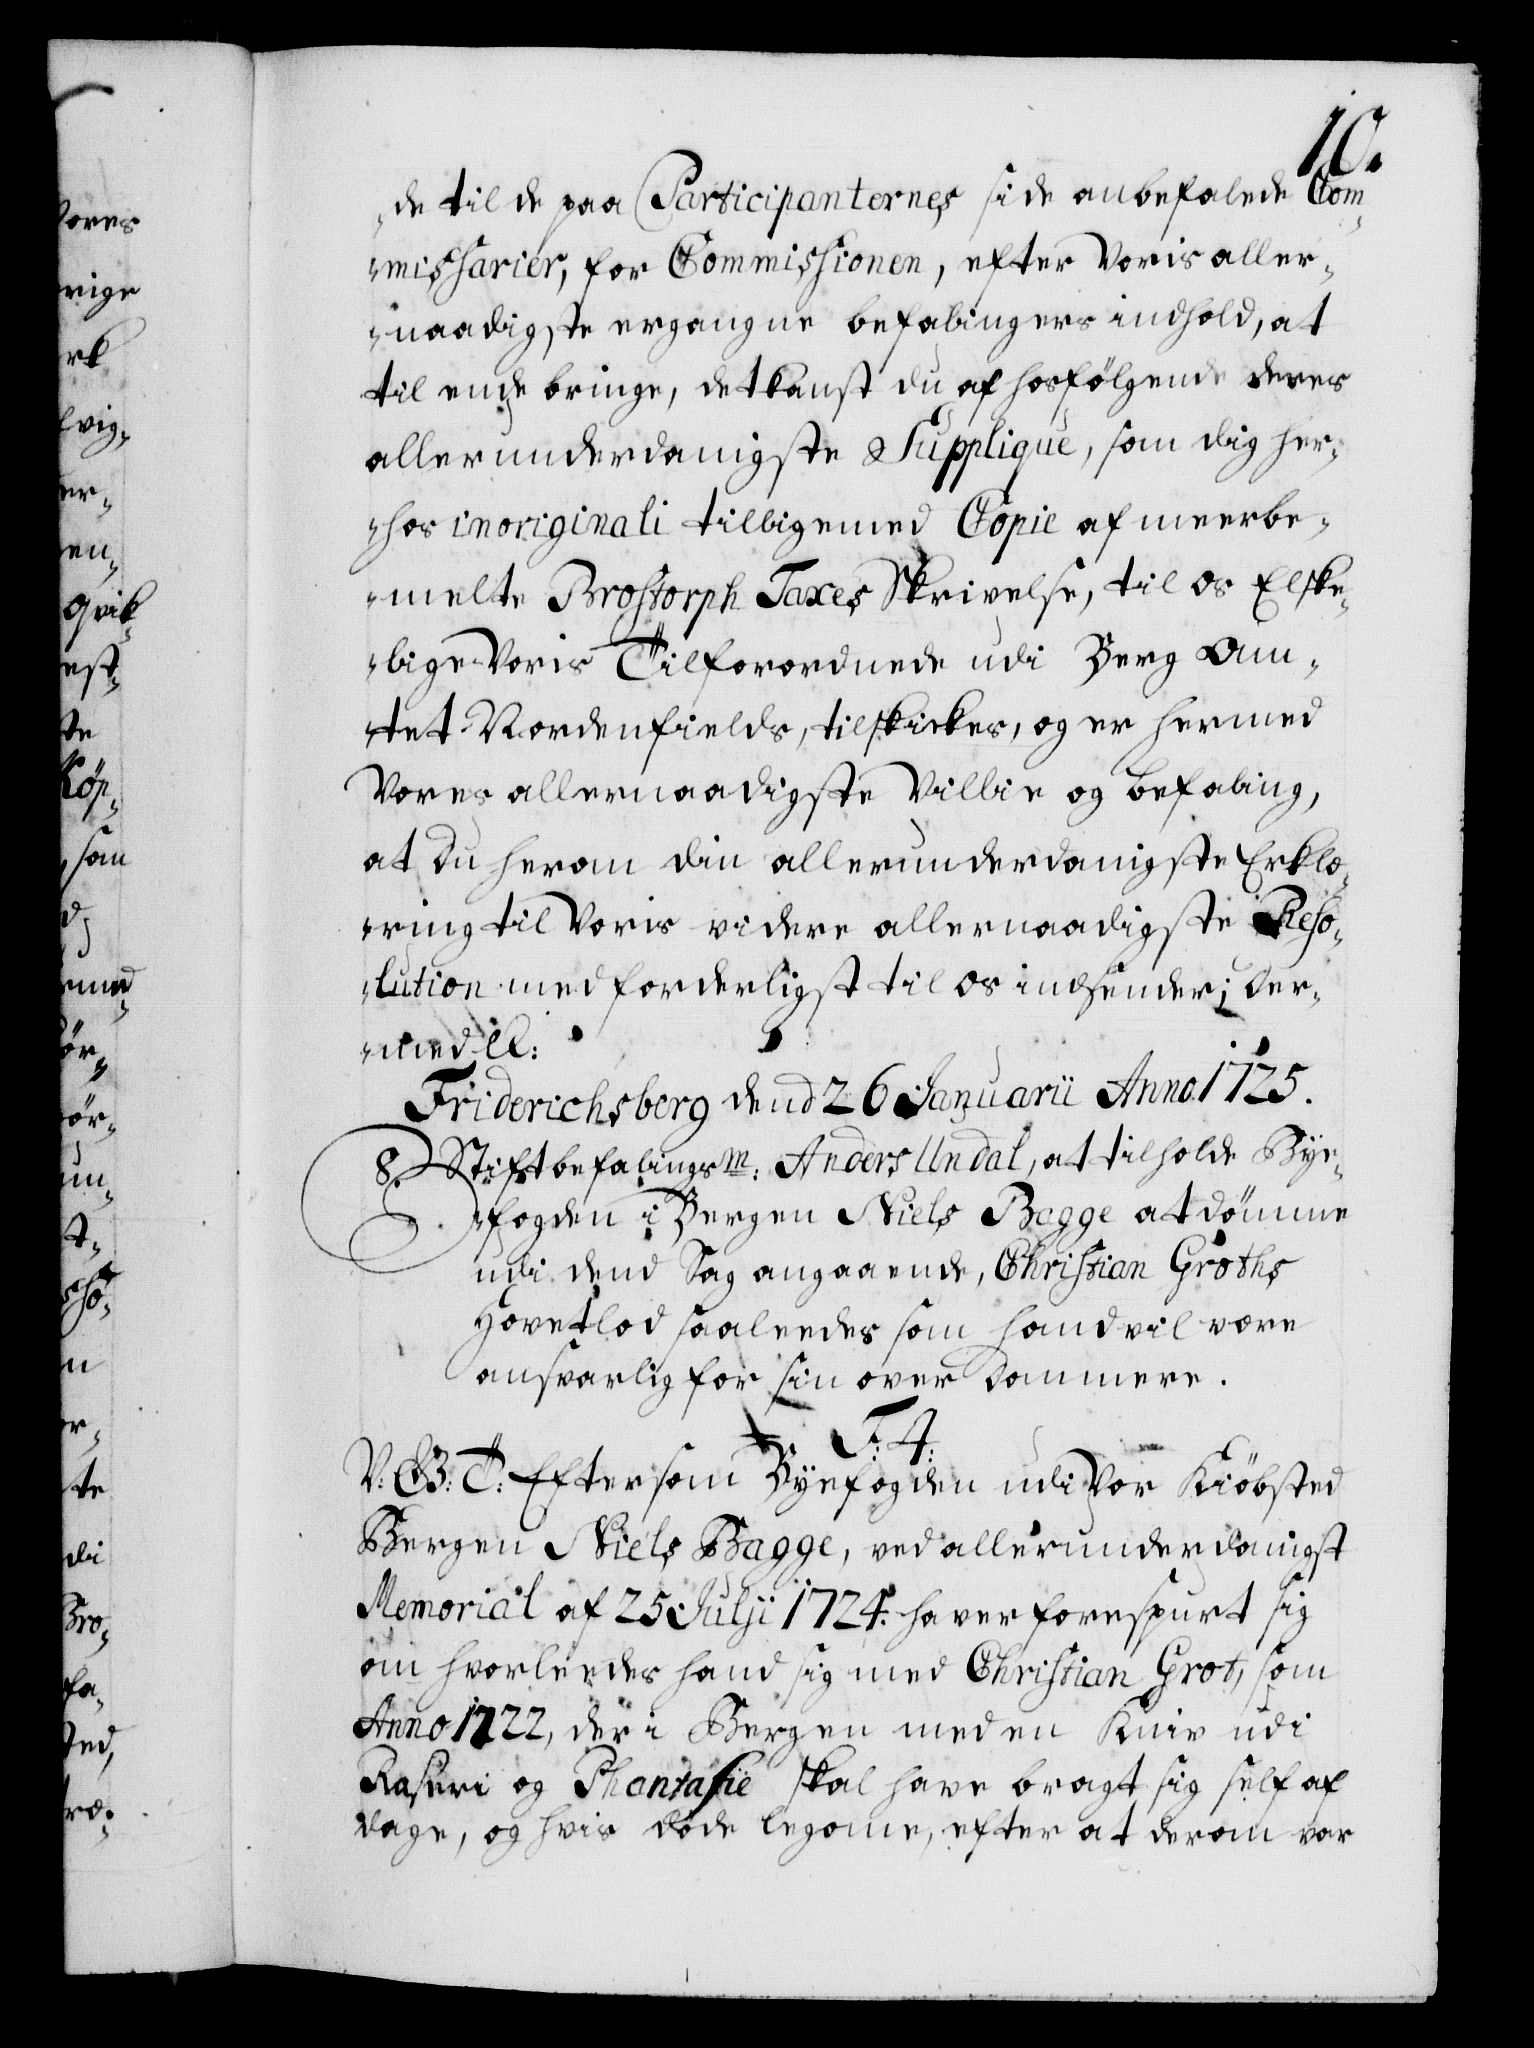 10.
de til de paa Participanternes side anbefalede Com-
-missarier, for Commissionen, efter Voris aller-
-naadigste ergangne befalingers indhold, at
til ende bringe, det kanst du af hosfölgende deres
allerunderdanigste Supplique, som dig her-
-hos in originali tilligemed Copie af meerbe-
-melte Brostorph Taxes Skrivelse, til os Elske-
-lige Voris Tilforordnede udi Berg Am-
-tet Nordenfields, tilskickes, og er hermed
Vores allernaadigste Villie og befaling,
at du herom din allerunderdanigste Erklæ-
-ring til Voris videre allernaadigste Reso-
-lution med forderligst til os indsender; Der-
-med etc:
Friderichsberg dend 26 Januarii Anno 1725.
8. Stiftbefalingsm: Anders Undal, at tilholde Bye-
-fogden i Bergen Niels Bagge at dömme
udi dend Sag angaaende, Christian Groths
Hovetlod saaleedes som hand vil være
ansvarlig for sin over Dommere.
F: 4:
V: G: T: Eftersom Byefogden udi Vor Kiöbsted
Bergen Niels Bagge, ved allerunderdanigst
Memorial af 25 Julji 1724. haver forespurt sig
om hvorleedes hand sig med Christian Grot, som
Anno 1722, der i Bergen med en Kniv udi
Raseri og Phantasie skal have bragt sig self af
dage, og hvis döde legome, efter at derom var
Vores
erk
er-
en-
qvik-
est-
te
Köp-
, som
ör-
ör-
st-
n
er-
ste
di
Bro-
fa-
sted,